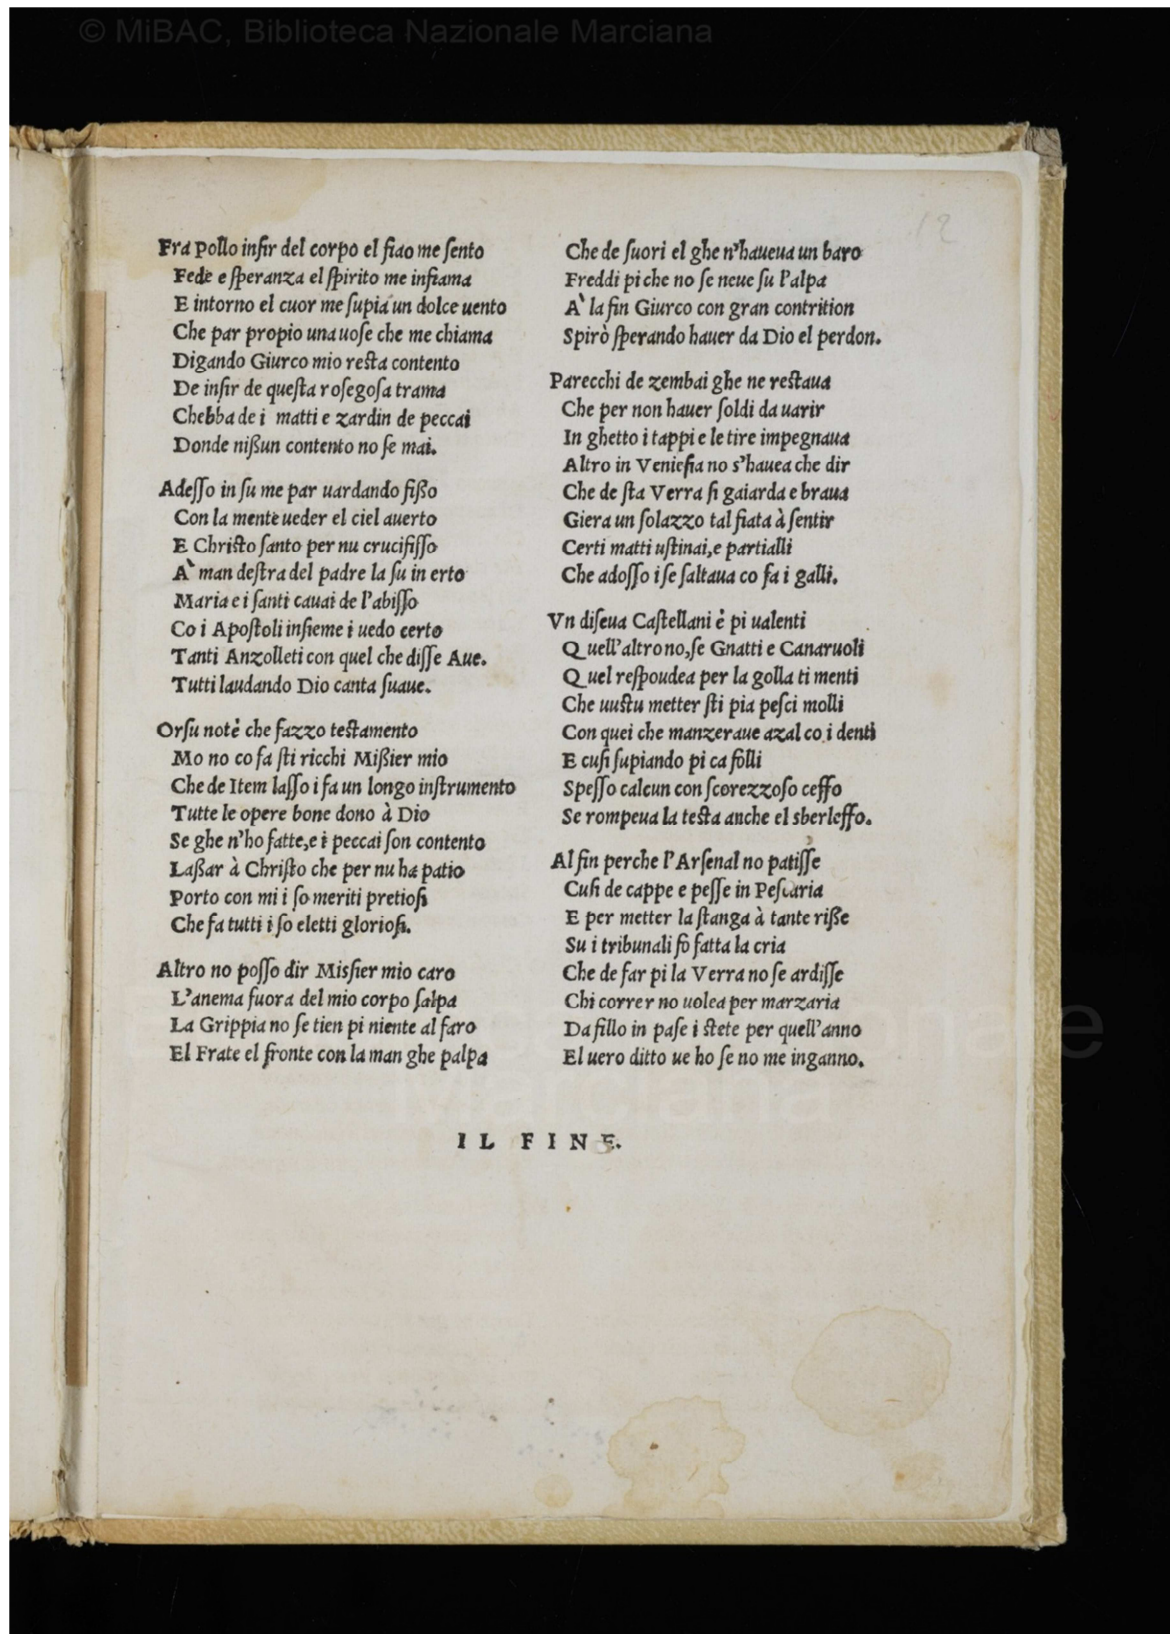 © MiBAC, Biblioteca Nazionale Marciana
12
Fra Pollo inſir del corpo el fiao me ſento
Fede e ſperanza el ſpirito me infiama
E intorno el cuor me ſupia un dolce uento
Che par propio una uoſe che me chiama
Digando Giurco mio reſta contento
De inſir de queſta roſegoſa trama
Chebba de i matti e zardin de peccai
Donde nißun contento no ſe mai.
Adeſſo in ſu me par uardando fißo
Con la mente ueder el ciel auerto
E Chriſto ſanto per nu crucifiſſo
A` man deſtra del padre la ſu in erto
Maria e i ſanti cauai de l'abiſſo
Co i Apoſtoli inſieme i uedo certo
Tanti Anzolleti con quel che diſſe Aue.
Tutti laudando Dio canta ſuaue.
Orſu notè che fazzo teſtamento
Mo no co fa ſti ricchi Mißier mio
Che de Item laſſo i fa un longo inſtrumento
Tutte le opere bone dono à Dio
Se ghe n'ho fatte,e i peccai ſon contento
Laßar à Chriſto che per nu ha patio
Porto con mi i ſo meriti pretioſi
Che fa tutti i ſo eletti glorioſi.
Altro no poſſo dir Misſier mio caro
L'anema fuora del mio corpo ſalpa
La Grippia no ſe tien pi niente al faro
El Frate el fronte con la man ghe palpa
Che de fuori el ghe n'haueua un baro
Freddi pi che no ſe neue ſu l'alpa
A` la fin Giurco con gran contrition
Spirò ſperando hauer da Dio el perdon.
Parecchi de zembai ghe ne reſtaua
Che per non hauer ſoldi da uarir
In ghetto i tappi e le tire impegnaua
Altro in Venieſia no s'hauea che dir
Che de ſta Verra ſi gaiarda e braua
Giera un ſolazzo tal fiata à ſentir
Certi matti uſtinai,e partialli
Che adoſſo i ſe ſaltaua co fa i galli.
Vn diſeua Caſtellani è pi ualenti
Quell'altro no,ſe Gnatti e Canaruoli
Quel reſpoudea per la golla ti menti
Che uuſtu metter ſti pia peſci molli
Con quei che manzeraue azal co i denti
E cuſi ſupiando pi ca folli
Speſſo calcun con ſcorezzoſo ceffo
Se rompeua la teſta anche el sberleffo.
Al fin perche l'Arſenal no patiſſe
Cuſi de cappe e peſſe in Peſcaria
E per metter la ſtanga à tante riße
Su i tribunali fò fatta la cria
Che de far pi la Verra no ſe ardiſſe
Chi correr no uolea per marzaria
Da fillo in paſe i ſtete per quell'anno
El uero ditto ue ho ſe no me inganno.
IL FINE.
Marciana